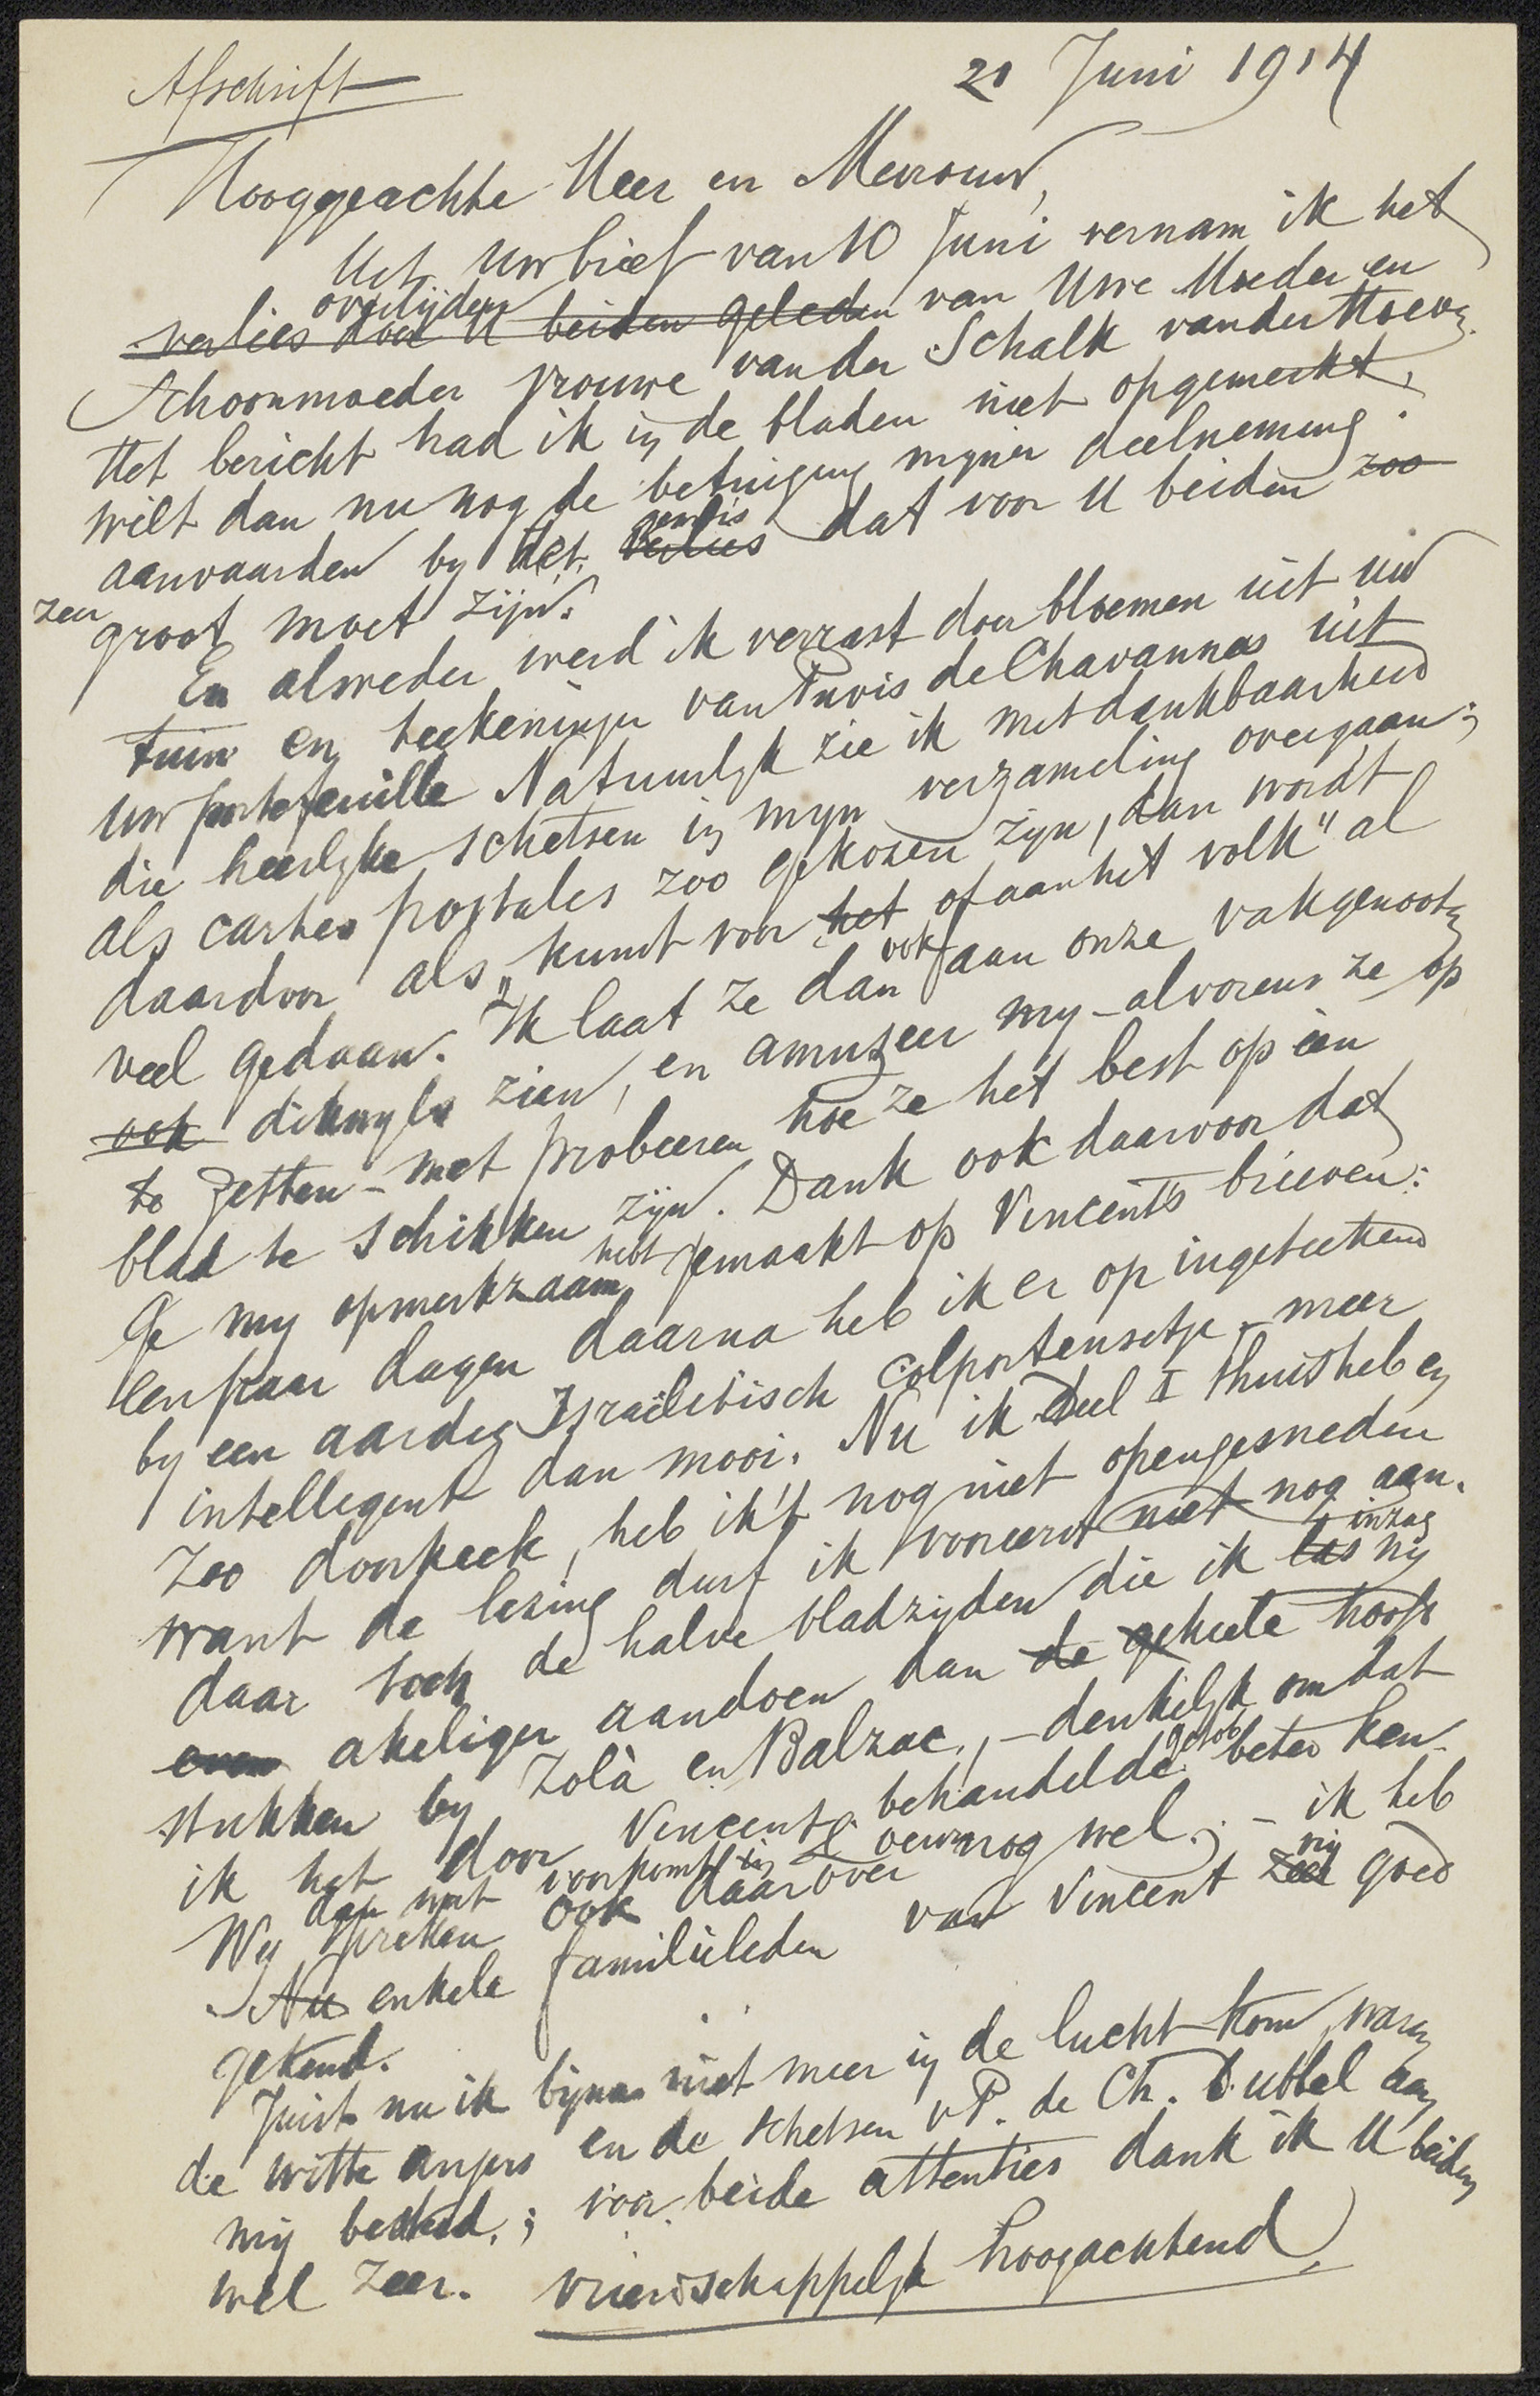 Afschrift
21 Juni 1914
Hooggeachte Heer en Mevrouw,
Uit Uw brief van 10 Juni vernam ik het
overlijden
verlies door U beiden geleden van Uwe Moeder en
Schoonmoeder Vrouwe van der Schalk van der Hoeven.
Het bericht had ik in de bladen niet opgemerkt.
wilt dan nu nog de betuiging mijner deelneming
aanvaarden by het verlies dat voor U beiden zoo
gemis
zeer groot moet zijn.
En alweder werd ik verrast door bloemen uit uw
tuin en teekeningen van Puvis de Chavannes uit
uw portefeuille Natuurlyk zie ik met dankbaarheid
die heerlyke schetsen in myn verzameling overgaan;
als cartes postales zoo gekozen zijn, dan wordt
daardoor als "kunst voor het of aan het volk" al
veel gedaan. Ik laat ze dan ook aan onze vakgenooten
ook dikwyls zien, en amuzeer my - alvorens ze op
te zetten - met probeeren hoe ze het best op één
blad te schikken zijn. Dank ook daarvoor dat
Ge my opmerkzaam hebt gemaakt op Vincent's brieven:
een paar dagen daarna heb ik er op ingeteekend
by een aardig Israëlitisch colporteusetje - meer
intelligent dan mooi. Nu ik Deel I thuis heb en
zoo doorkeek, heb ik 't nog niet opengesneden
want de lezing durf ik vooreerst niet nog aan.
daar toch de halve bladzijden die ik las my
inzag
even akeliger aandoen dan de geheele hoofd
stukken by Zolà en Balzac, - denkelyk omdat
ik het door Vincent behandelde beter ken
dan wat voorkomt in
Wy spreken ook daarover nog wel.; - ik heb
Nu enkele familieleden van Vincent zeer goed
vrij
gekend.
Juist nu ik bijna niet meer in de lucht kom, waren
de witte anjers en de schetsen v P. de Ch. dubbel aan
mij besteed.; voor beide attenties dank ik U beiden
wel zeer. vriendschappelyk hoogachtend